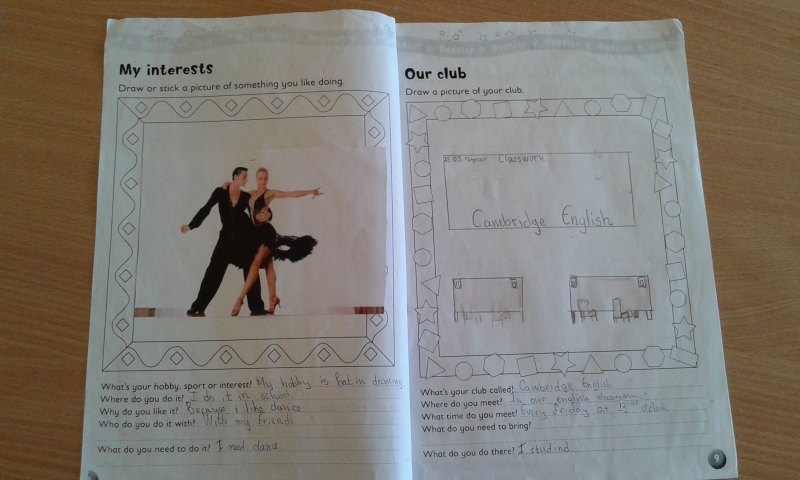 My interests
Draw or stick a picture of something you like doing.
What's your hobby, sport or interest? My hobby is dancing
Where do you do it? I do it in school
Why do you like it? Because i like dance
Who do you do it with? With my friends
What do you need to do it? I need dance
Our club
Draw a picture of your club.
Classwork
Cambridge English
What's your club called? Cambridge English
Where do you meet? In our english classroom
What time do you meet? Every friday at
What do you need to bring?
What do you do there? I studind
9